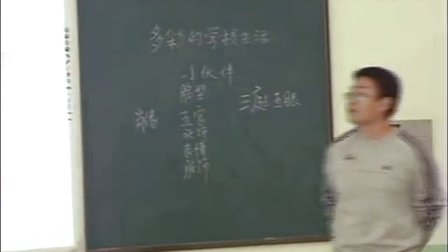 多彩的学校生活
小伙伴
脸型
五官
发饰
表情
服饰
三庭五眼